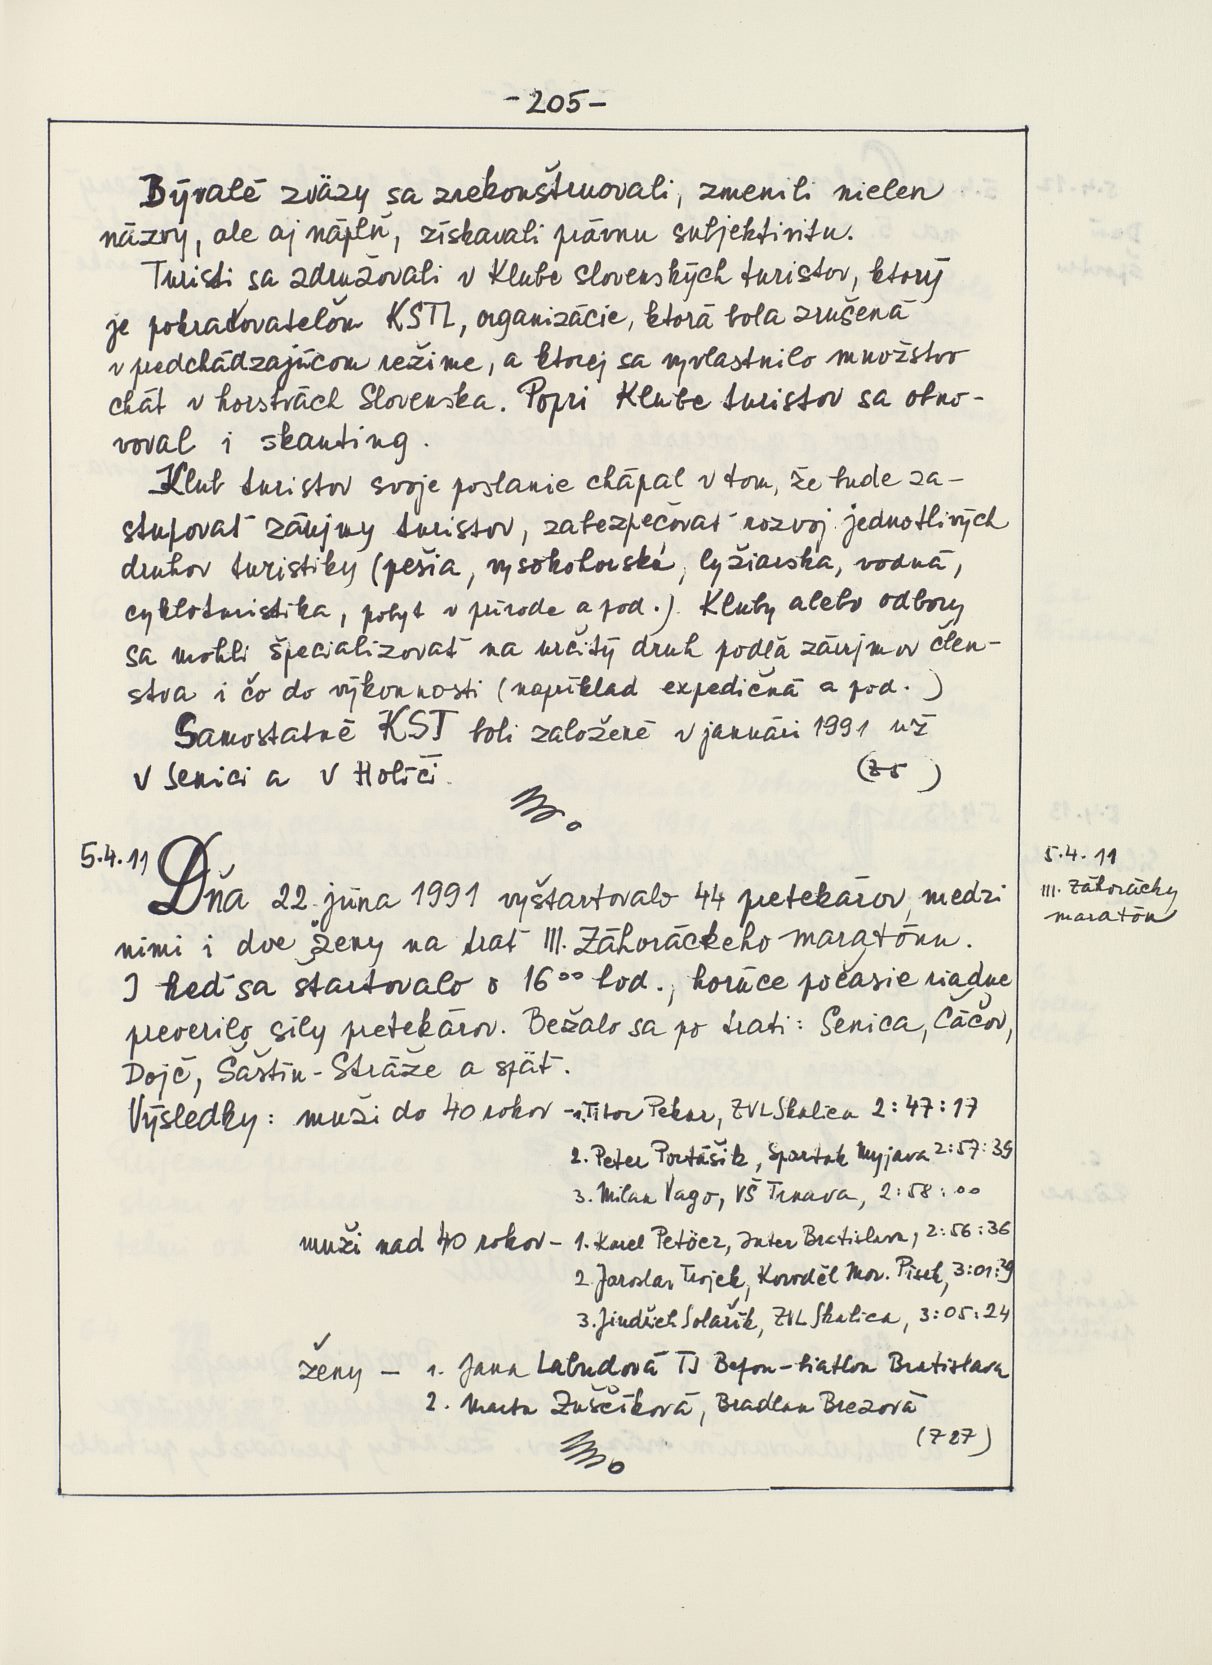 -205-
Bývalé zväzy sa zrekonštruovali, zmenili nielen
názvy, ale aj náplň, získavali právnu subjektivitu.
Turisti sa združovali v Klube slovenských turistov, ktorý
je pokračovateľom KSTL, organizácie, ktorá bola zrušená
v predchádzajúcom režime, a ktorej sa vyvlastnilo množstvo
chát v horstvách Slovenska. Popri Klube turistov sa obno-
voval i skauting.
Klub turistov svoje poslanie chápal v tom, že bude za-
stupovať záujmy turistov, zabezpečovať rozvoj jednotlivých
druhov turistiky (pešia, vysokohorská, lyžiarska, vodná,
cykloturistika, pobyt v prírode a pod.). Kluby alebo odbory
sa mohli špecializovať na určitý druh podľa záujmov člen-
stva i čo do výkonnosti (napríklad expedičná a pod.)
Samostatné KST boli založené v januári 1991 už
v Senici a v Holíči.
5.4.11 Dňa 22. júna 1991 vyštartovalo 44 pretekárov, medzi
nimi i dve ženy na trať III. Záhoráckeho maratónu.
I keď sa štartovalo o 16⁰⁰ hod., horúce počasie riadne
preverilo sily pretekárov. Bežalo sa po trati: Senica, Čáčov,
Dojč, Šaštín-Stráže a späť.
Výsledky: muži do 40 rokov - 1. Tibor Pekar, ZVL Skalica 2:47:17
2. Peter Portášik, Spartak Myjava 2:57:39
3. Milan Vago, VŠ Trnava, 2:58:00
muži nad 40 rokov - 1. Karel Petöcz, Inter Bratislava, 2:56:36
2. Jaroslav Trojek, Kovoděl Mor. Písek, 3:01:39
3. Jindřich Solařík, ZVL Skalica, 3:05:24
ženy - 1. Jana Labudová TJ Bepon-biatlon Bratislava
2. Marta Zuščíková, Bradlan Brezová
(Z 27)
5.4.11
III. Záhorácky
maratón